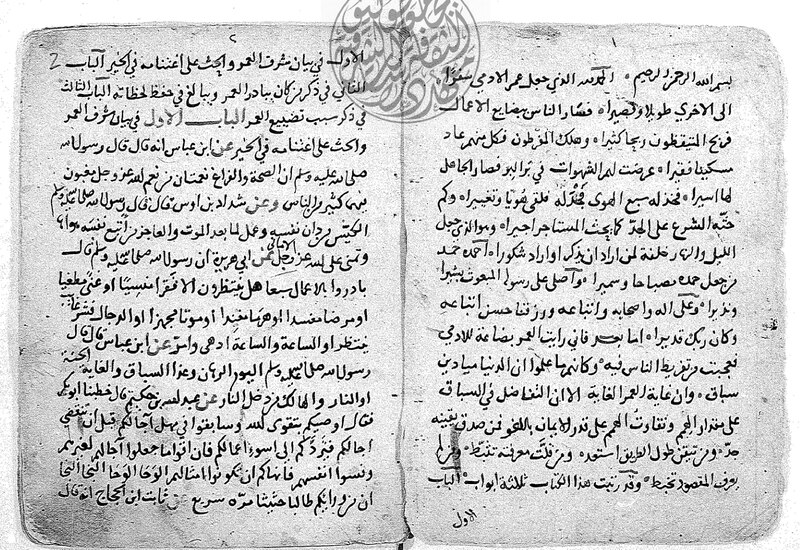 ١
بسم الله الرحمن الرحيم الحمد لله الذي جعل عمر الادمي سفرا
الى الاخرى طويلا وقصيرا فسار الناس ببضايع الاعمال
فربح المتيقظون ربحا كثيرا وهلك المفرطون فكل منهم عاد
مسكينا فقيرا عرضت لهم الشهوات في فصار الجاهل
لها اسيرا سبع الهوى فلقى هونا وتغييرا وكم
حثه الشرع على الجد كما يحث المستاجر اجيرا وهو الذي جعل
الليل والنهار خلفة لمن اراد ان يذكر او اراد شكورا احمده حمد
من جعل حمده مصباحا وسميرا واصلى على رسوله المبعوث بشيرا
ونذيرا وعلى اله واصحابه واتباعه ورزقنا حسن اتباعه
وكان ربك قديرا اما بعد فانى رايت العمر بضاعة للادمى
فعجبت من تفريط الناس فيه وكانهم ما علموا ان الدنيا ميادين
سباق وان غاية العمر الغاية الا ان التفاضل في السباق
على مقدار الهمم وتفاوت الهمم على قدر الايمان باللغو فمن صدق يقينه
جد ومن تيقن طول الطريق استعد ومن قلت معرفته تثبط ومن لم
يعرف المقصود تخبط وقد رتبت هذا الكتاب ثلثة ابواب الباب
الاول
٢
2
الاول في بيان شرف العمر والحث على اغتنامه في الخير الباب
الثاني في ذكر من كان يبادر العمر ويبالغ في حفظ لحظاته الباب الثالث
في ذكر سبب تضييع العمر الباب الاول في بيان شرف العمر
والحث على اغتنامه في الخير عن ابن عباس انه قال قال رسول الله
صلى الله عليه وسلم ان الصحة والفراغ نعمتان من نعم الله عز وجل مغبون
فيهما كثير من الناس وعن شداد بن اوس قال قال رسول الله صلى الله عليه وسلم
الكيس من دان نفسه وعمل لما بعد الموت والعاجز من اتبع نفسه هواها
وتمنى على الله عز وجل الامانى عن ابي هريرة ان رسول الله صلى الله عليه وسلم قال
بادروا بالاعمال سبعا هل ينتظرون الا فقرا منسيا او غنى مطغيا
او مرضا مفسدا او هرما مفندا او موتا مجهزا او الدجال فشر غائب
ينتظر او الساعة والساعة ادهى وامر عن ابن عباس قال قال
رسول الله صلى الله عليه وسلم اليوم الرهان وغدا السباق والغاية الجنة
او النار والهالك من دخل النار عن عبد الله بن حكيم قال خطبنا ابو بكر
فقال اوصيكم بتقوى الله وسابقوا في مهل اجالكم قبل ان تنقضي
اجالكم فتردكم الى اسوء اعمالكم فان اقواما جعلوا آجالهم لغيرهم
ونسوا انفسهم فانهاكم ان تكونوا امثالهم الوحا الوحا النجا النجا
ان من ورائكم طالبا حثيثا مره سريع عن ثابت ابن الحجاج انه قال